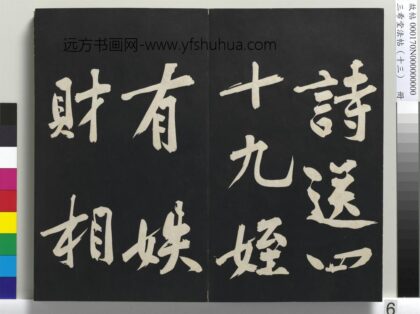 远方书画网-www.yfshuhua.com
詩送四
十九姪
有妷
財相
故帖 000170N000000000
三希堂法帖(十三) 冊
6